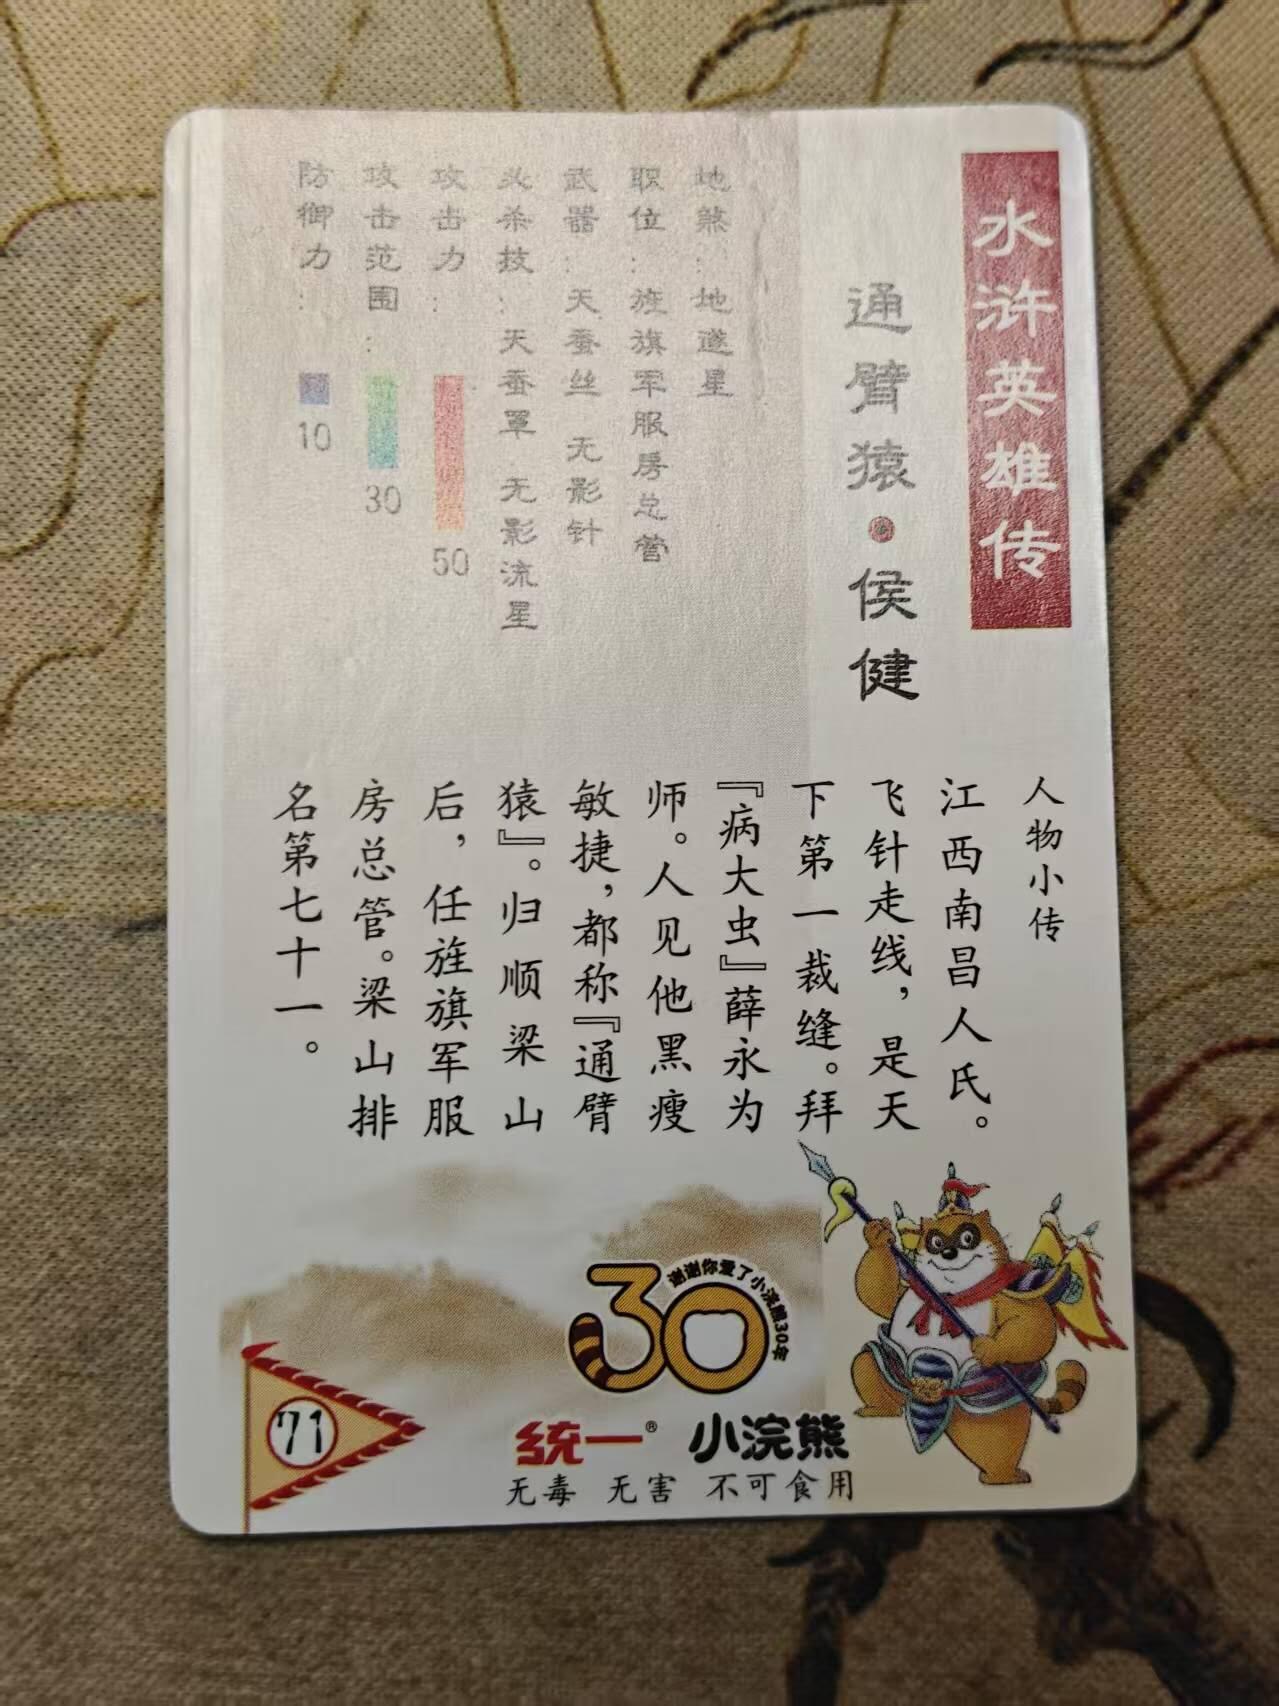 水浒英雄传
通臂猿·侯健
地煞：地遂星
职位：旌旗军服房总管
武器：天蚕丝 无影针
必杀技：天蚕罩 无影流星
攻击力：50
攻击范围：30
防御力：10
人物小传
江西南昌人氏。
飞针走线，是天
下第一裁缝。拜
『病大虫』薛永为
师。人见他黑瘦
敏捷，都称『通臂
猿』。归顺梁山
后，任旌旗军服
房总管。梁山排
名第七十一。
谢谢你爱了小浣熊30年
30
统一® 小浣熊
无毒 无害 不可食用
71